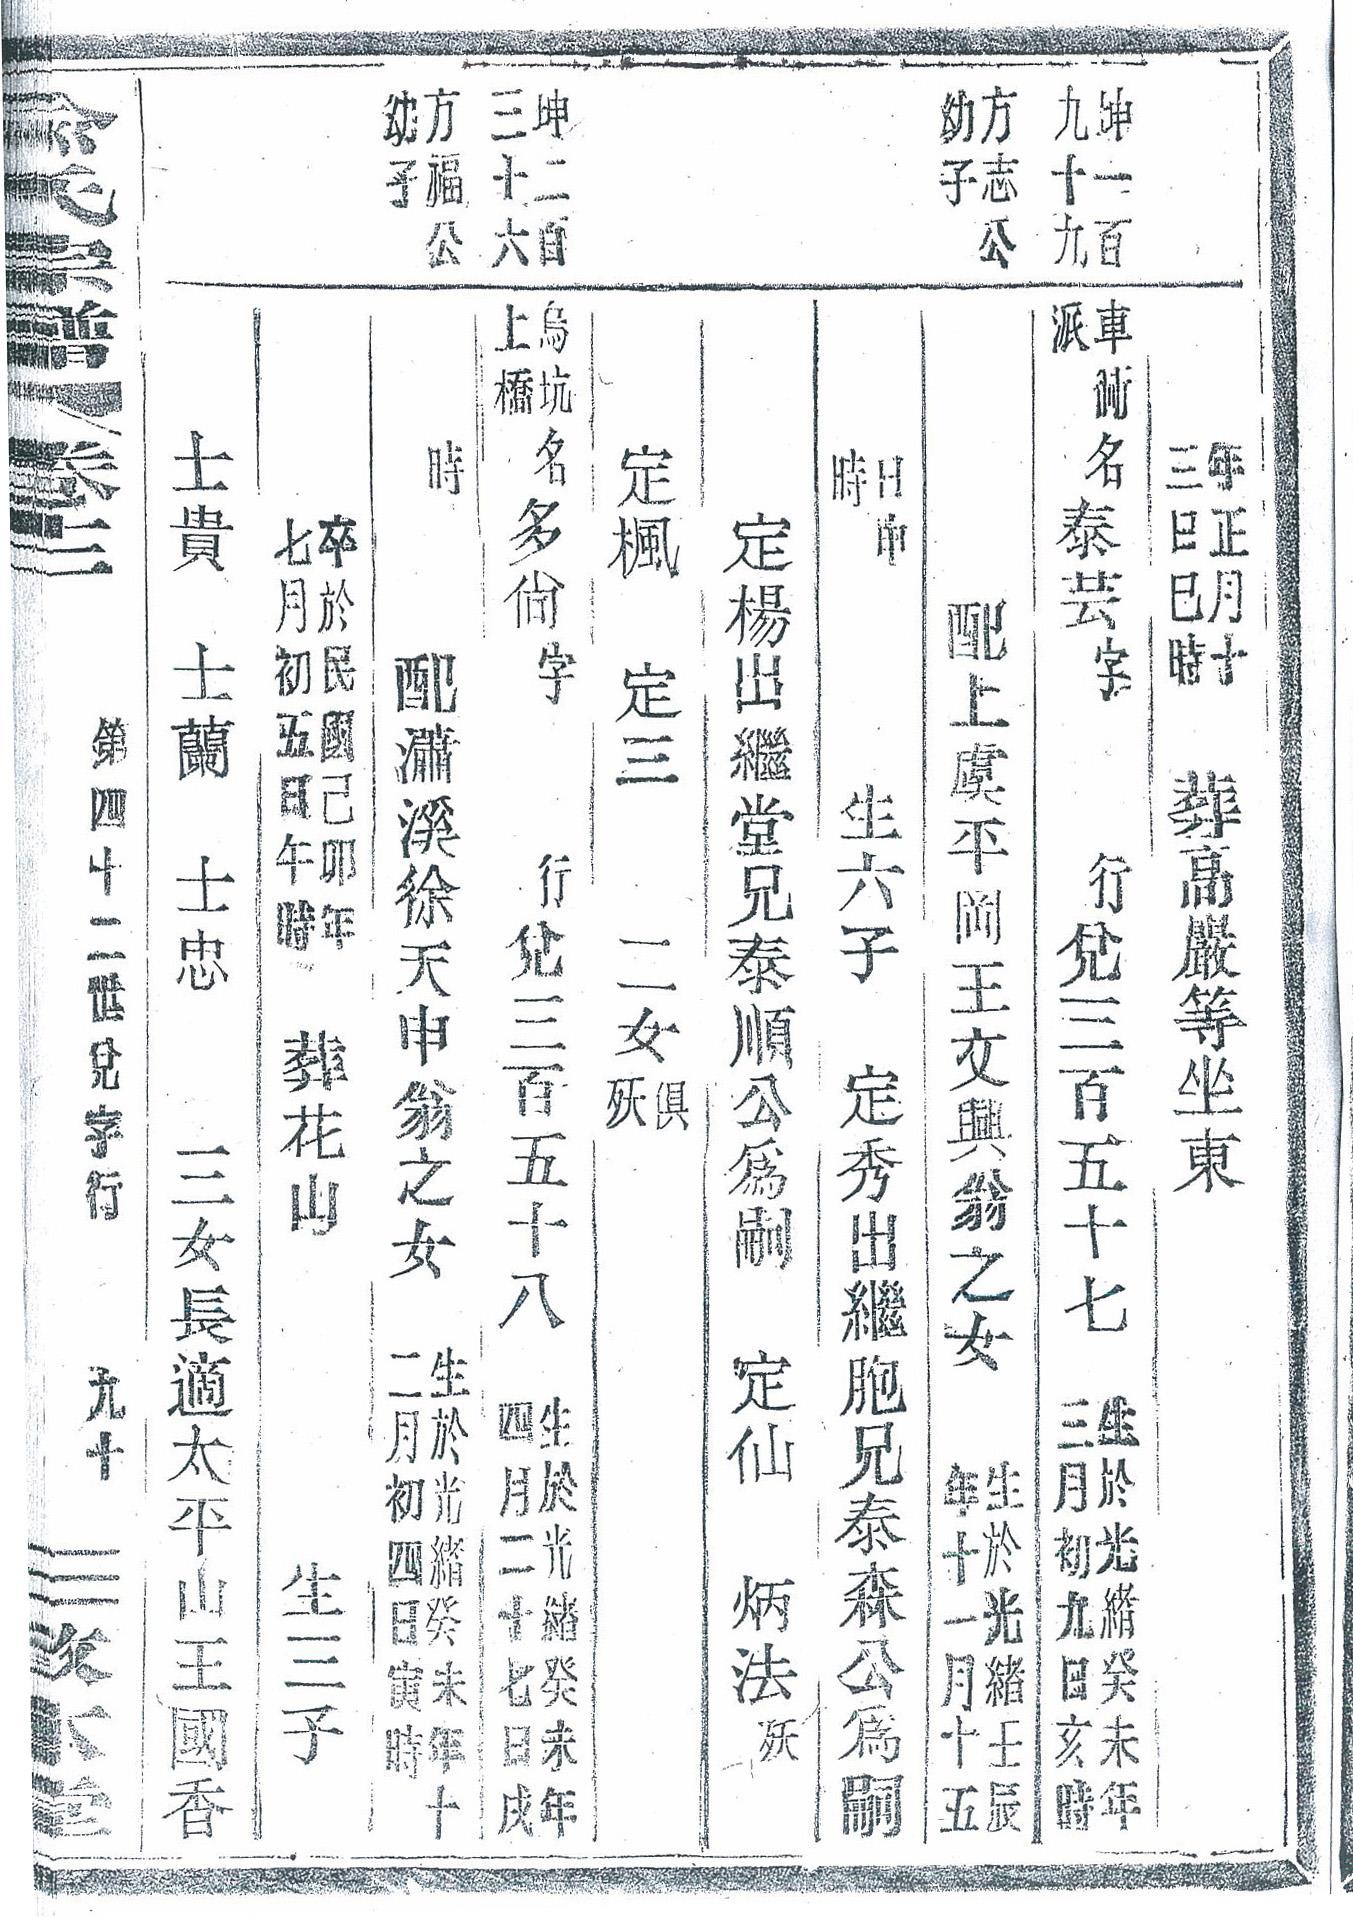 年正月十三日巳時 葬高嚴等坐東
坤一百九十九 車衖派 名泰芸字 行兌三百五十七 生於光緒癸未年三月初九日亥時
方志公幼子 配上虞平岡王文興翁之女 生於光緒壬辰年十一月十五
日申時 生六子 定秀出繼胞兄泰森公爲嗣
定楊出繼堂兄泰順公爲嗣 定仙 炳法殀
定楓 定三 二女俱殀
坤二百三十六 烏坑上橋 名多尙字 行兌三百五十八 生於光緒癸未年四月二十七日戌
方福公幼子 時 配瀟溪徐天申翁之女 生於光緒癸未年十二月初四日寅時
卒於民國己卯年七月初五日午時 葬花山 生三子
士貴 士蘭 士忠 三女長適太平山王國香
氏宗譜 卷二 第四十二世兌字行 九十